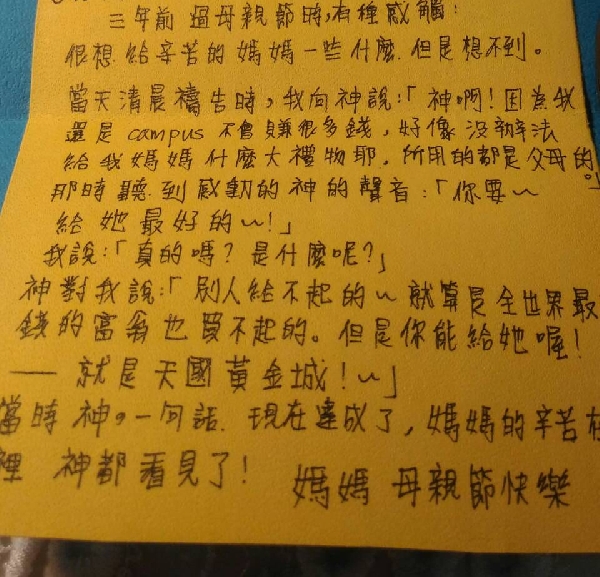 三年前 過母親節時,有種感觸:
很想給辛苦的媽媽一些什麼.但是想不到。
當天清晨禱告時,我向神說:「神啊!因為我
還是campus 不會賺很多錢,好像沒辦法
給我媽媽什麼大禮物耶,所用的都是父母的。」
那時聽到感動的神的聲音:「你要~
給她最好的~!」
我說:「真的嗎?是什麼呢?」
神對我說:「別人給不起的~就算是全世界最
錢的富翁也買不起的。但是你能給她喔!
——就是天國黃金城!~」
當時神。一句話.現在達成了,媽媽的辛苦在
裡 神都看見了!
媽媽 母親節快樂